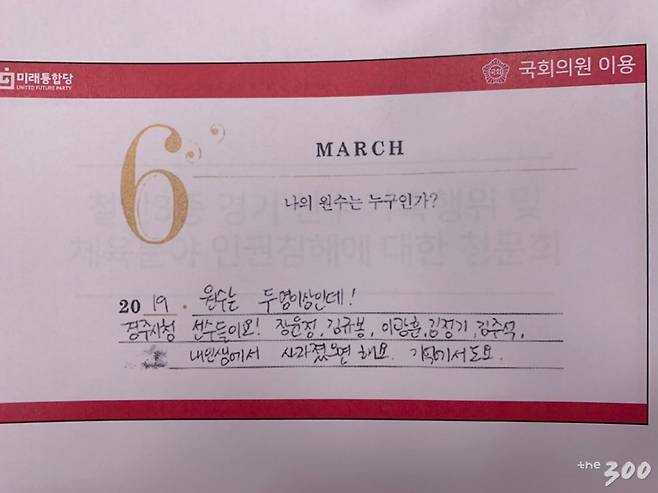 미래통합당
UNITED FUTURE PARTY
국회의원 이용
6
MARCH
나의 원수는 누구인가?
철인3종 경기 행위 및
체육분야 인권침해에 대한 청문회
2019. 원수는 두명이상인데!
경주시청 선수들이요! 장윤정, 김규봉, 이광훈, 김정기, 김주석,
내인생에서 사라졌으면 해요. 기억에서도요.
the 300